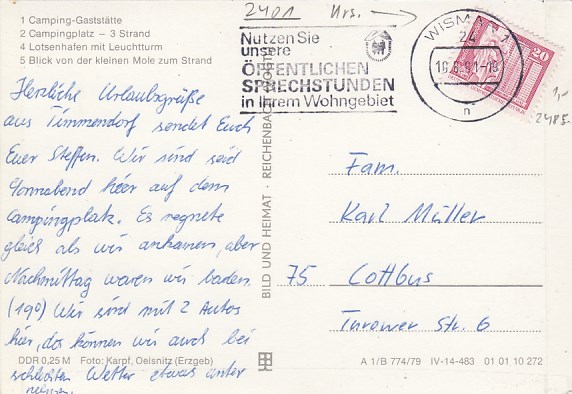 1 Camping-Gaststätte
2 Campingplatz – 3 Strand
4 Lotsenhafen mit Leuchtturm
5 Blick von der kleinen Mole zum Strand
Herzliche Urlaubsgrüße
aus Timmendorf sendet Euch
Euer Steffen. Wir sind seid
Sonnabend hier auf dem
Campingplatz. Es regnete
gleich als wir ankamen, aber
Nachmittag waren wir baden.
(19°) Wir sind mit 2 Autos
hier, da können wir auch bei
schlechten Wetter etwas unter
nehmen.
DDR 0,25 M Foto: Karpf, Oelsnitz (Erzgeb)
BILD UND HEIMAT · REICHENBACH
2401 Hrs.
Nutzen Sie
unsere
ÖFFENTLICHEN
SPRECHSTUNDEN
in Ihrem Wohngebiet
WISMAR 1
24
n
20
1,-
2485.
Fam.
Karl Müller
75 Cottbus
Turower Str. 6
A 1/B 774/79 IV-14-483 01 01 10 272